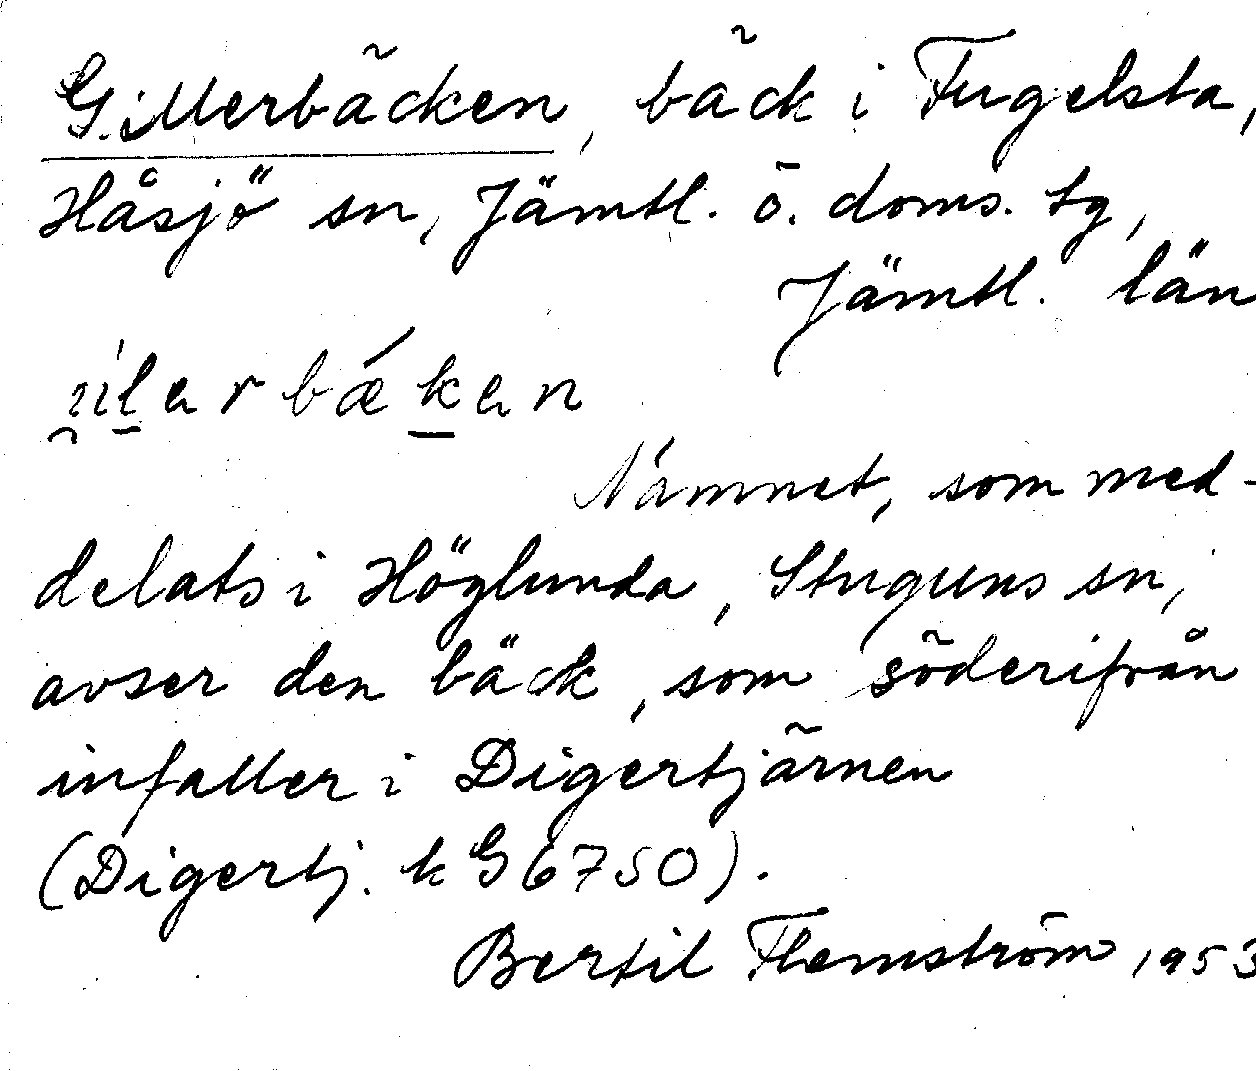 Gillerbäcken, bäck i Fugelsta,
Håsjö sn, Jämtl. ö. doms. tg,
Jämtl. län
Namnet, som med-
delats i Höglunda, Stuguns sn,
avser den bäck, som söderifrån
infaller i Digertjärnen
(Digertj. k G 6750).
Bertil Flemström 1953